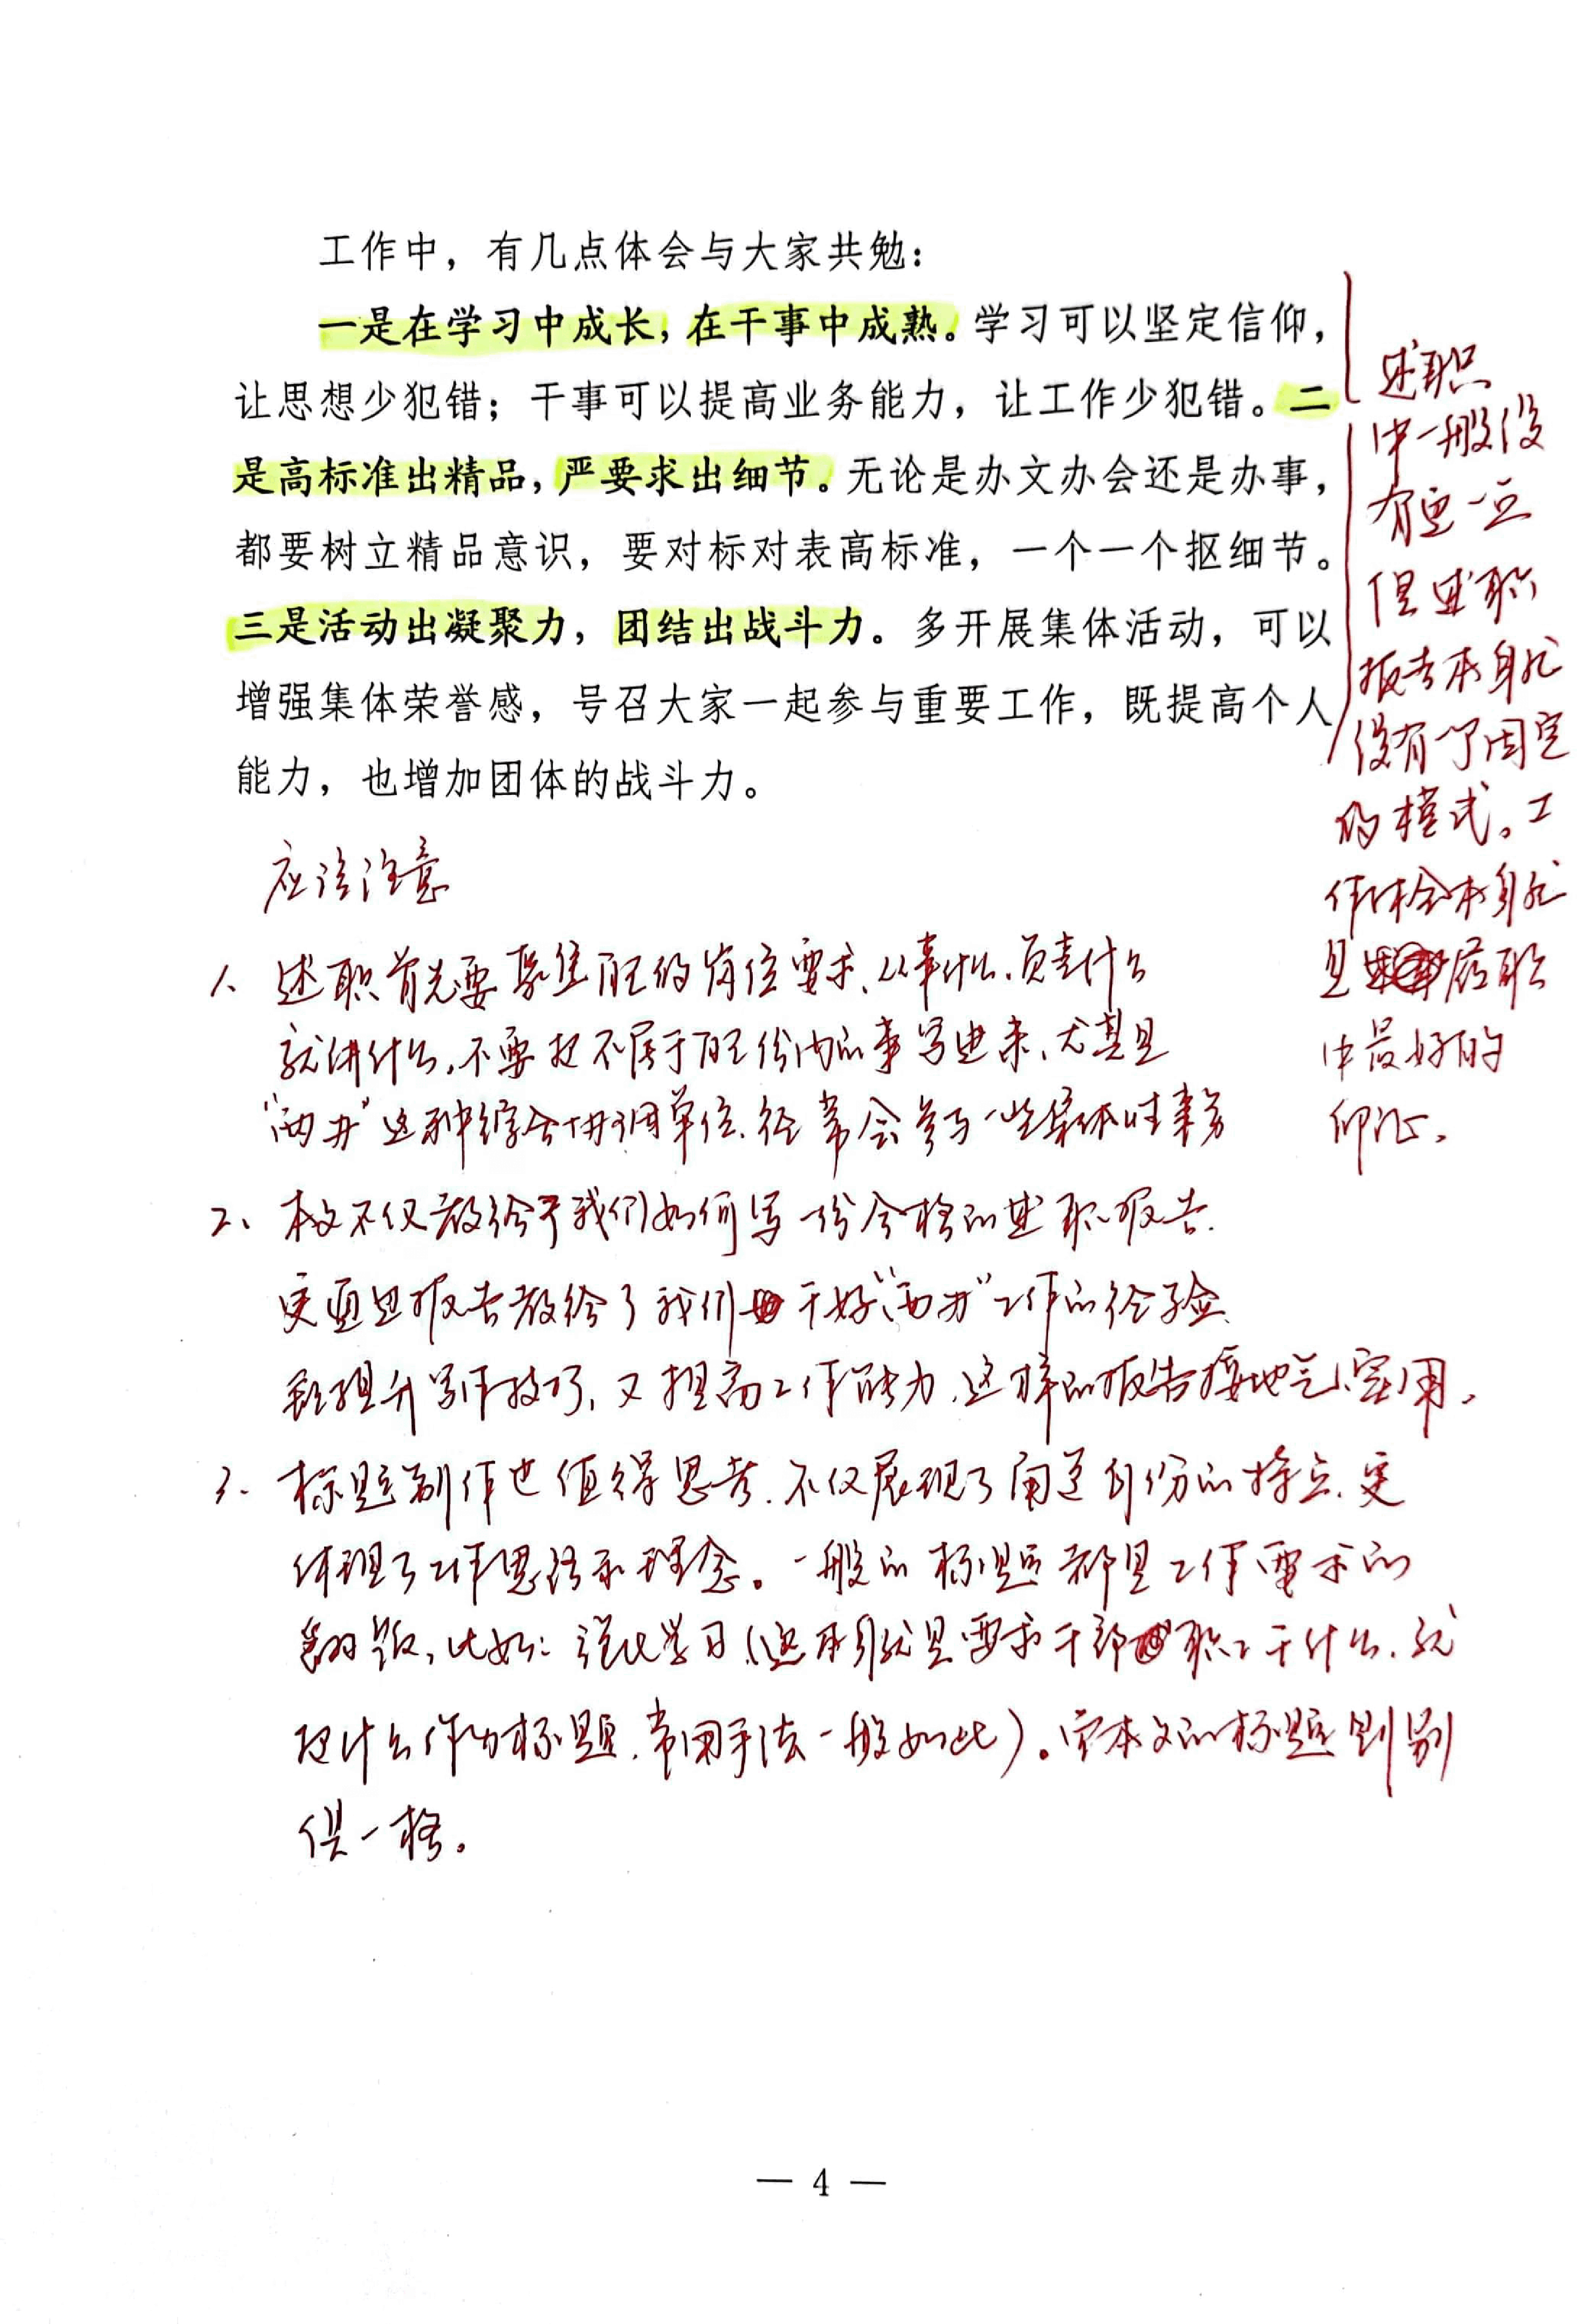 工作中，有几点体会与大家共勉：
一是在学习中成长，在干事中成熟。学习可以坚定信仰，
让思想少犯错；干事可以提高业务能力，让工作少犯错。二
是高标准出精品，严要求出细节。无论是办文办会还是办事，
都要树立精品意识，要对标对表高标准，一个一个抠细节。
三是活动出凝聚力，团结出战斗力。多开展集体活动，可以
增强集体荣誉感，号召大家一起参与重要工作，既提高个人
能力，也增加团体的战斗力。
述职
中一般没
有这一点
但述职
报告本身就
没有一个固定
的模式。工
作体会本身就
是履职
中最好的
印证。
应该注意
1、述职首先要聚焦的岗位要求、从事什么、负责什么
就讲什么，不要把不属于份内的事写进来、尤其是
“两办”这种综合协调单位、经常会参与一些集体性事务
2、本文不仅教给予我们如何写一份合格的述职报告、
更通过报告教给了我们干好“两办”工作的经验、
既提升写作技巧，又提高工作能力、这样的报告接地气、实用。
3、标题制作也值得思考、不仅展现了身份的特点、更
体现了工作思路和理念。一般的标题都是工作要求的
翻版，比如：强化学习（这本身就是要求干部职工干什么、就
把什么作为标题、常用手法一般如此）。本文的标题则别
具一格。
— 4 —